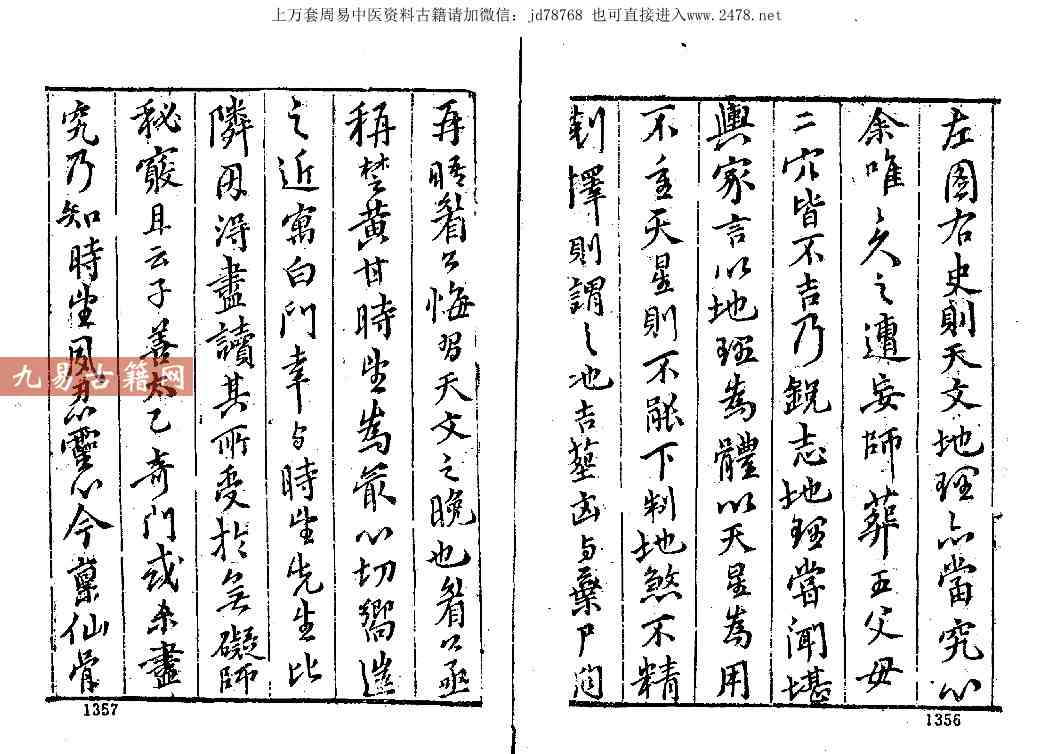 上万套周易中医资料古籍请加微信：jd78768 也可直接进入www.2478.net
左图右史则天文地理亦當究心
余唯久之遭妄師葬五父母
二穴皆不吉乃銳志地理嘗聞堪
輿家言以地理為體以天星為用
不重天星則不能下制地煞不精
剋擇則謂之地吉塟凶与棄尸同
1356
再晤着公悔習天文之晚也着公亟
稱楚黄甘時望為最心切嚮遙
之近寓白門幸与時望先生比
隣因得盡讀其所受於無礙師
秘竅且云子善太乙奇門或未盡
究乃知時望夙慧靈心今稟仙骨
1357
九易古籍网